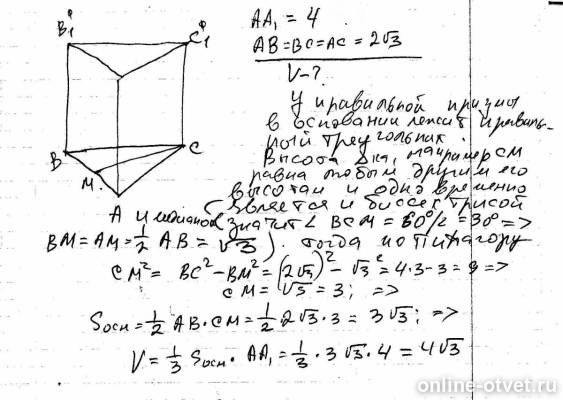 B₁ C₁
AA₁ = 4
AB=BC=AC = 2√3
V-?
У правильной призмы
в основании лежит правиль-
ный треугольник.
B C
Высота Δка, например CM
M
равна любым другим его
высотам и одновременно
является и биссектрисой
A и медианой (значит ∠ BCM = 60°/2 = 30° =>
BM = AM = 1/2 AB = √3). тогда по Пифагору
CM² = BC² - BM² = (2√3)² - √3² = 4·3-3 = 9 =>
CM = √9 = 3; =>
Sосн = 1/2 AB·CM = 1/2 2√3·3 = 3√3; =>
V = 1/3 Sосн · AA₁ = 1/3 · 3√3·4 = 4√3
online-otvet.ru